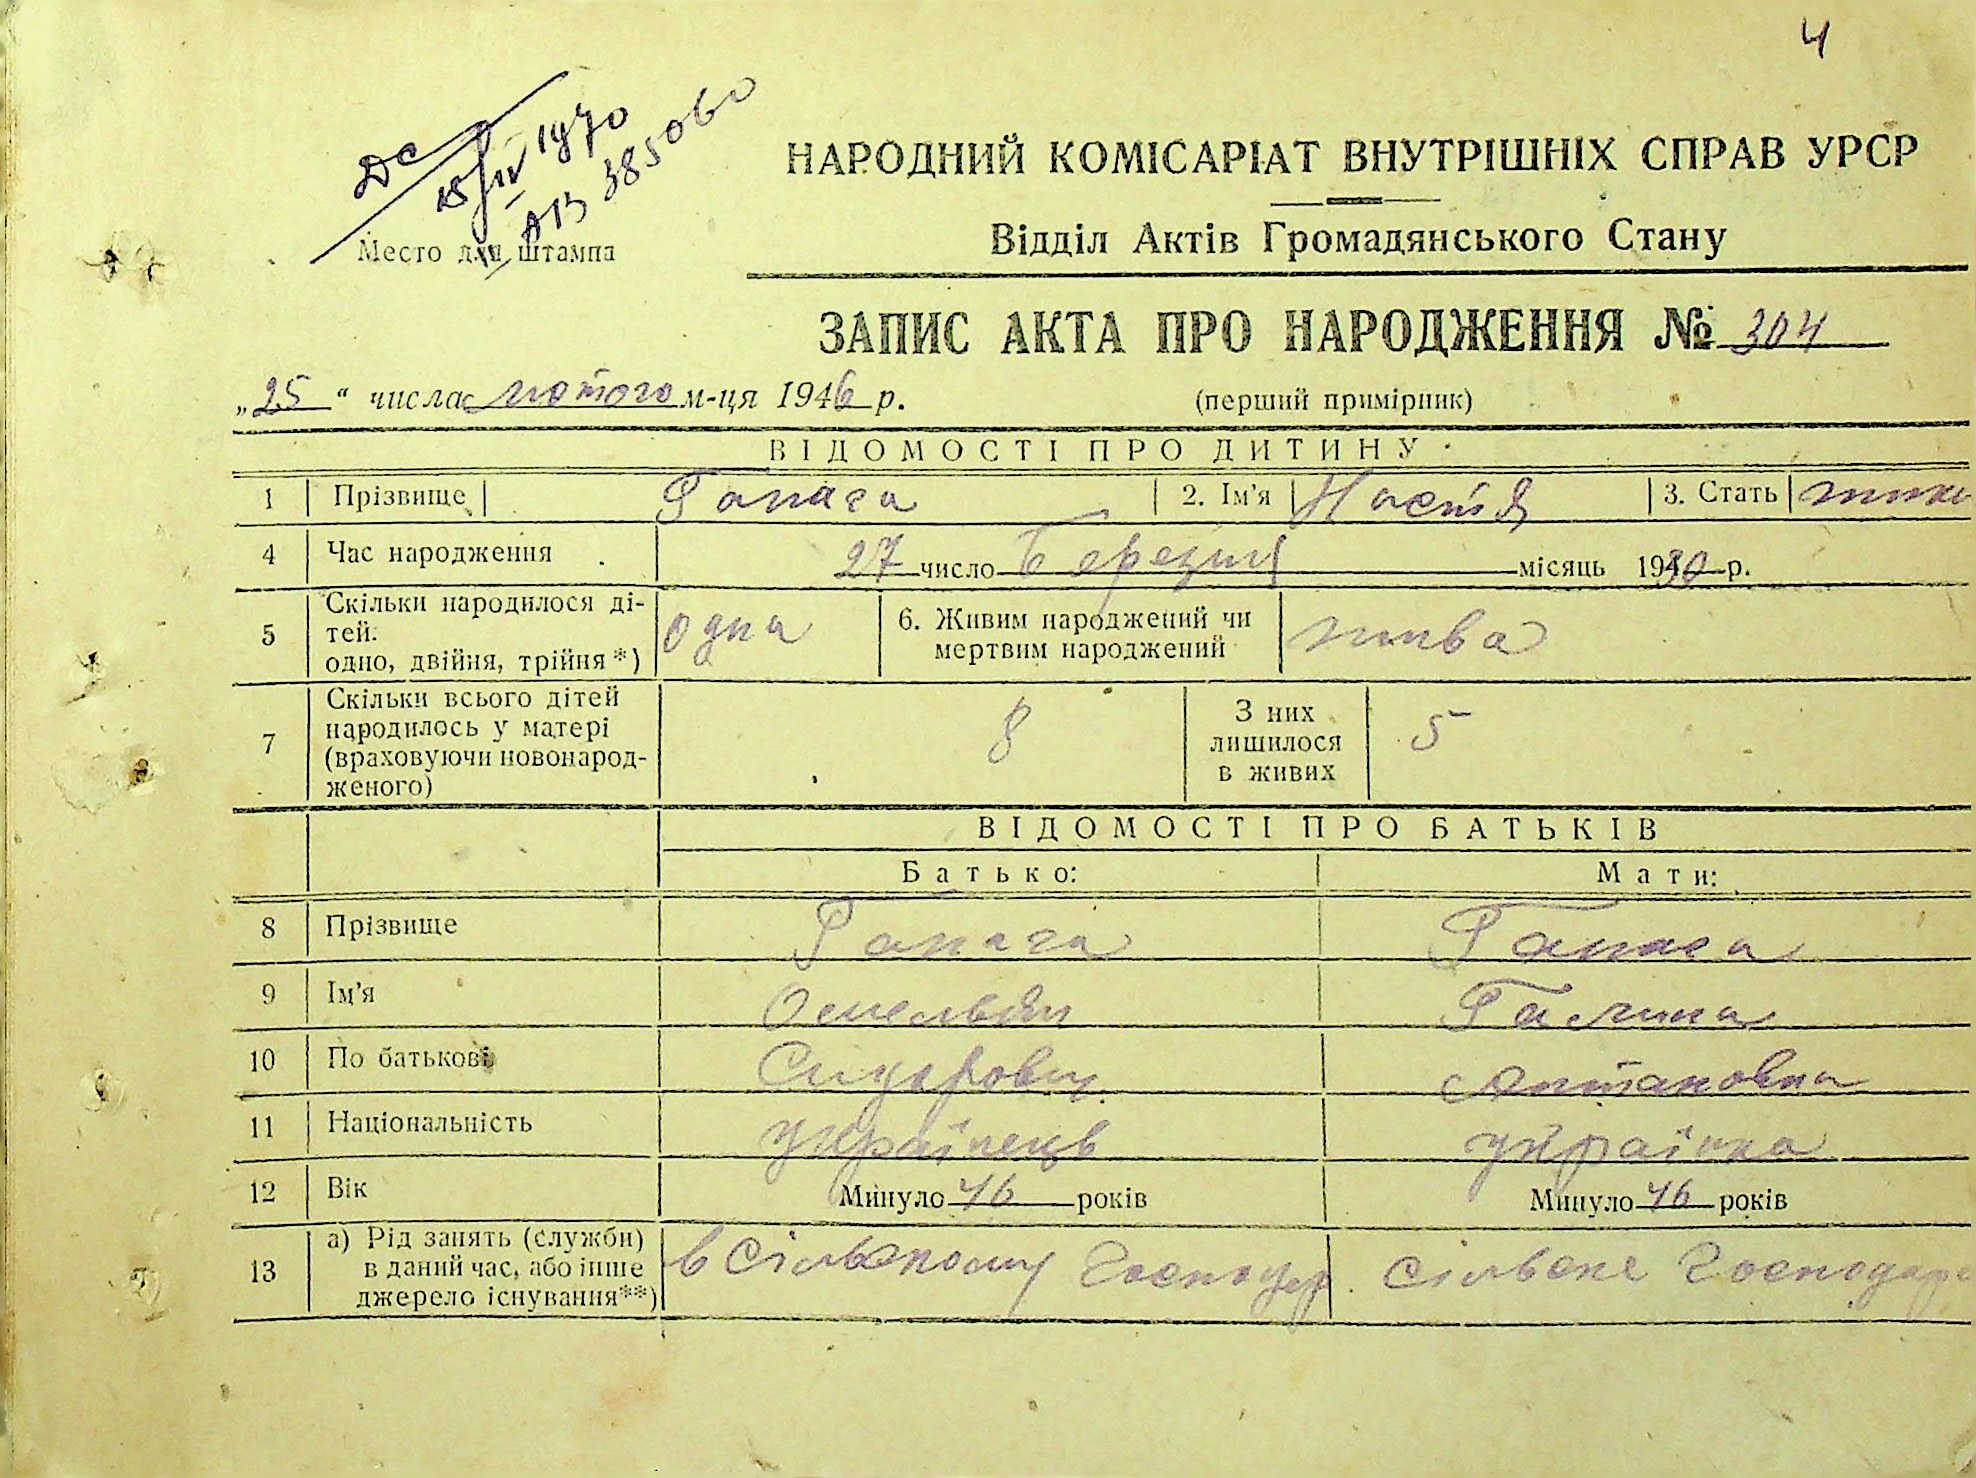 4
ДС
15/IV 1970
АІЗ 385060
Место для штампа
НАРОДНИЙ КОМІСАРІАТ ВНУТРІШНІХ СПРАВ УРСР
Відділ Актів Громадянського Стану
ЗАПИС АКТА ПРО НАРОДЖЕННЯ № 304
„25“ числа лютого м-ця 1946 р. (перший примірник)
ВІДОМОСТІ ПРО ДИТИНУ
1 Прізвище Гапага 2. Ім'я Настя 3. Стать
4 Час народження 27 число Березня місяць 1930 р.
5 Скільки народилося ді-
тей:
одно, двійня, трійня*) одна 6. Живим народжений чи
мертвим народжений жива
7 Скільки всього дітей
народилось у матері
(враховуючи новонарод-
женого) 8 З них
лишилося
в живих 5
ВІДОМОСТІ ПРО БАТЬКІВ
Батько: Мати:
8 Прізвище Гапага Гапага
9 Ім'я Омельян Галина
10 По батькові Сидорович Антоновна
11 Національність українець українка
12 Вік Минуло 46 років Минуло 46 років
13 а) Рід занять (служби)
в даний час, або інше
джерело існування**) в сільському господар сільське господар